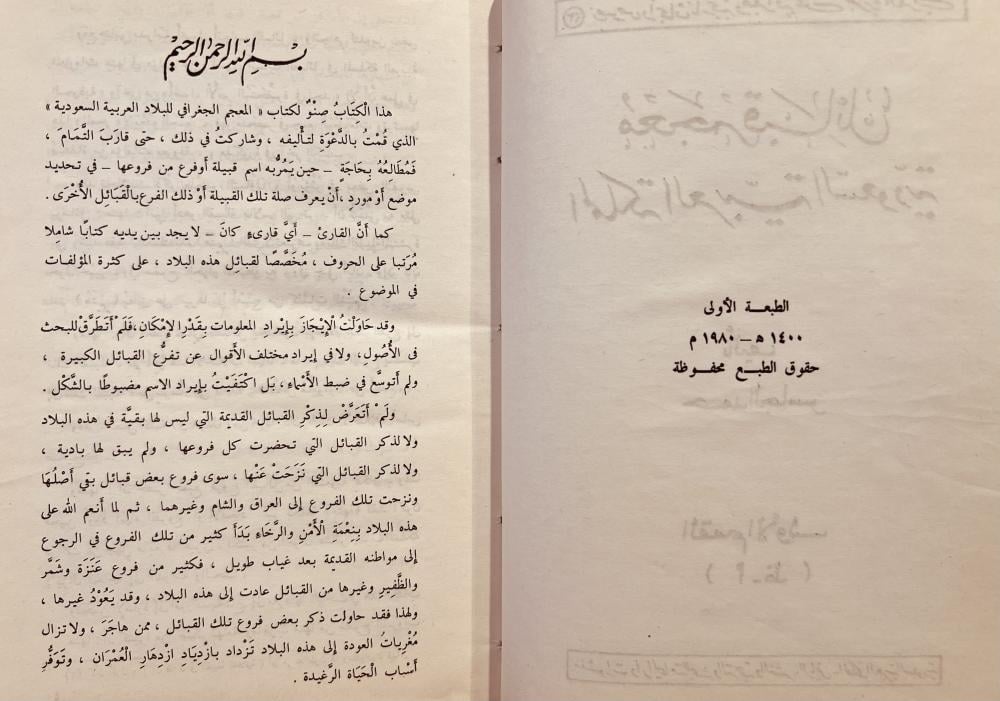 الطبعـة الأولى
١٤٠٠ هـ – ١٩٨٠ م
حقوق الطبـع محفـوظة
بسم الله الرحمن الرحيم
هذا الْكِتَابُ صِنْوٌ لكتاب « المعجم الجغرافي للبلاد العربية السعودية »
الذي قُمْتُ بالدَّعْوَةِ لتـأْليفه ، وشاركتُ في ذلك ، حتى قارَبَ التَّمَامَ ،
فَمُطَالِعُهُ بِحَاجَةٍ – حين يَمُرُّ به اسم قبيلة أوفرع من فروعها – في تحديد
موضع أَوْ موردٍ ، أَنْ يعرف صلة تلك القبيلة أَوْ ذلك الفرع بالْقَبَائِل الأُخْرَى .
كما أَنَّ القارئ – أَيَّ قارىءٍ كانَ – لا يجد بين يديه كتابًا شاملا
مُرَتبا على الحروف ، مُخَصَّصًا لقبائل هذه البلاد ، على كثرة المؤلفات
في الموضوع .
وقد حَاوَلْتُ الْإِيْجَازَ بِإِيْرادِ المعلومات بِقَدْرِ الإِمْكَانِ، فَلَمْ أَتَطَرَّقْ للبحث
فى الأُصُولِ، ولا في إيراد مختلف الأقوال عن تفرُّع القبائل الكبيرة ،
ولم أَتوسَّع في ضبط الأَسْماءِ ، بَل اكْتَفَيْتُ بإيراد الاسم مضبوطًا بـالشَّكْلِ .
ولَمْ أَتَعَرَّضْ لِذِكْرِ القبائل القديمة التي ليس لها بقيَّة في هذه البلاد
ولا لذكر القبائل التي تـحضرت كل فروعها ، ولم يبق لها بادية ،
ولا لذكر القبائل التي نَزَحَتْ عَنْها ، سوى فروع بعض قبائل بقي أَصْلُهَا
ونزحت تلك الفروع إلى العراق والشام وغيرهما ، ثم لما أَنعم الله على
هذه البلاد بِنِعْمَةِ الْأَمْنِ والرَّخَاءِ بَدَأَ كثير من تلك الفروع في الرجوع
إلى مواطنه القديمة بعد غياب طويل ، فكثير من فروع عَنَزَة وشَمَّر
والظَّفِيرِ وغيرها من القبائل عادت إلى هذه البلاد ، وقد يَعُوْدُ غيرها ،
ولهذا فقد حاولت ذكر بعض فروع تلك القبائل ، ممن هاجَرَ ، ولا تزال
مُغْرِياتُ العودة إلى هذه البلاد تَزْداد بـازْدِيَادِ ازْدِهَارِ الْعُمْرَان ، وتَوَفُّرِ
أَسْباب الْحَيَاة الرَّغيدة .